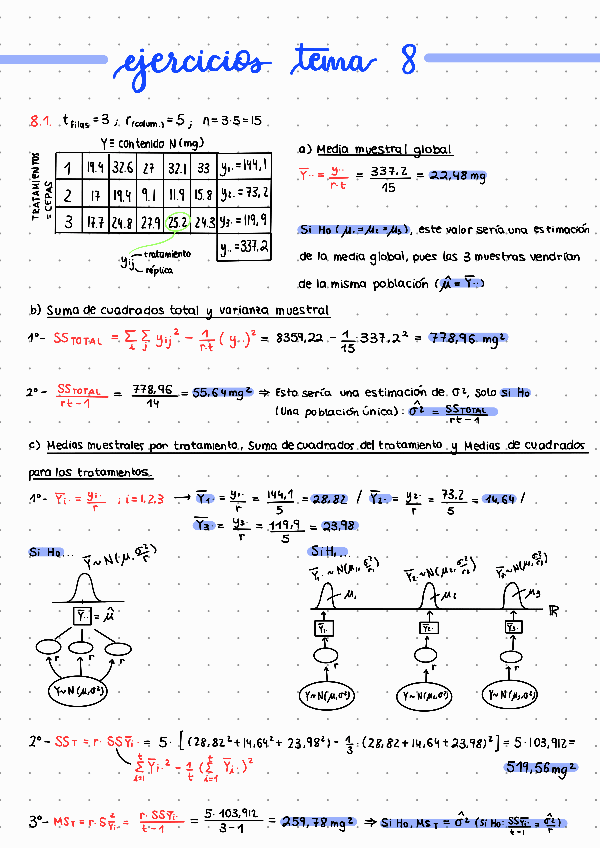 ejercicios tema 8
8.1. t filas = 3 ; r (colum.) = 5 ; n = 3·5 = 15
Y ≡ contenido N (mg)
TRATAMIENTOS = CEPAS
1 19.4 32.6 27 32.1 33 y₁. = 144,1
2 17 19.4 9.1 11.9 15.8 y₂. = 73,2
3 17.7 24.8 27.9 25.2 24.3 y₃. = 119,9
y.. = 337,2
yij tratamiento
réplica
a) Media muestral global
Ȳ.. = y.. / r·t = 337.2 / 15 = 22,48 mg
Si H₀ (μ₁ = μ₂ = μ₃), este valor sería una estimación
de la media global, pues las 3 muestras vendrían
de la misma población (μ̂ = Ȳ..)
b) Suma de cuadrados total y varianza muestral
1º- SS TOTAL = Σi Σj yij² - 1/r·t (y..)² = 8359,22 - 1/15 · 337.2² = 778,96 mg²
2º- SS TOTAL / rt-1 = 778,96 / 14 = 55.64 mg² ⇒ Esto sería una estimación de σ², solo si H₀
(Una población única): σ̂² = SS TOTAL / rt-1
c) Medias muestrales por tratamiento, Suma de cuadrados del tratamiento y Medias de cuadrados
para los tratamientos.
1º- Ȳi. = yi. / r ; i = 1,2,3 → Ȳ₁ = y₁. / r = 144,1 / 5 = 28,82 / Ȳ₂. = y₂. / r = 73.2 / 5 = 14,64 /
Ȳ₃ = y₃. / r = 119,9 / 5 = 23,98
Si H₀... Ȳ ~ N(μ, σ²/r)
Ȳ.. = μ̂
r r r
Y ~ N(μ, σ²)
Si H₁...
Ȳ₁. ~ N(μ₁, σ²/r₁) Ȳ₂. ~ N(μ₂, σ²/r₂) Ȳ₃. ~ N(μ₃, σ²/r₃)
μ₁ μ₂ μ₃
ℝ
Ȳ₁. Ȳ₂. Ȳ₃.
r r r
Y ~ N(μ₁, σ²) Y ~ N(μ₂, σ²) Y ~ N(μ₃, σ²)
2º- SS T = r · SSȲi. = 5 · [(28,82² + 14,64² + 23,98²) - 1/3 · (28,82 + 14,64 + 23,98)²] = 5·103,912 =
Σ i=1 t Ȳi.² - 1/t (Σ i=1 t Ȳi.)²
519,56 mg²
3º- MS T = r · S²Ȳi. = r · SSȲi. / t-1 = 5·103,912 / 3-1 = 259,78 mg² ⇒ Si H₀, MS T = σ̂² (Si H₀: SSȲi. / t-1 = σ̂²/r)